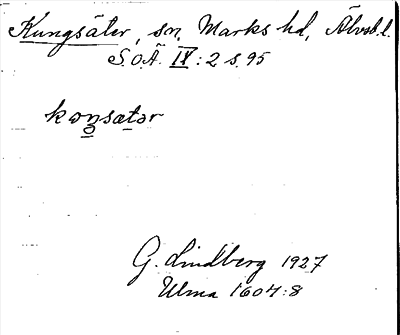 Kungsäter, sn, Marks hd, Älvsb.l.
S.O.Ä. IX:2 s. 95
kωnsatər
G. Lindberg 1927
Ulma 1604:8